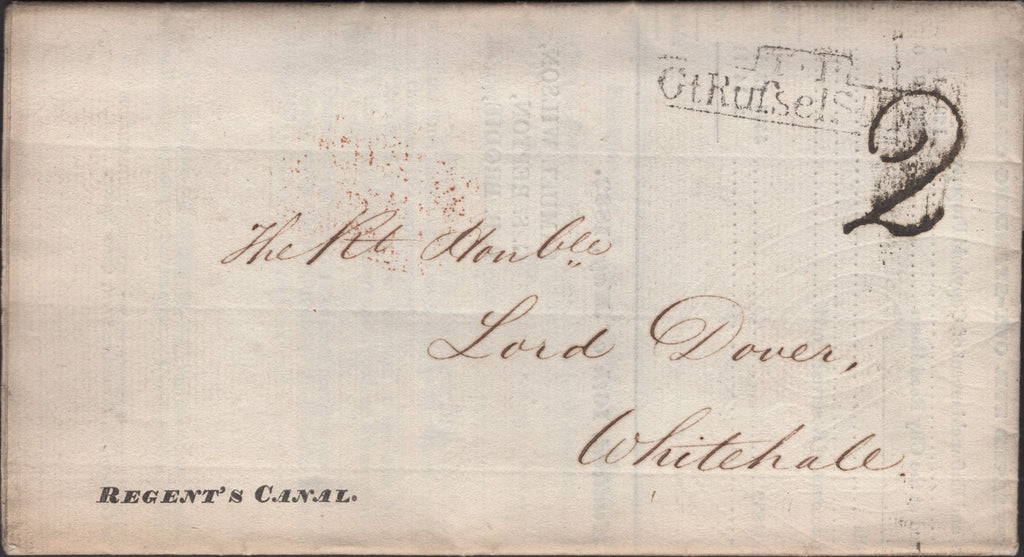 T.P
GtRuſselS
2
The Rt Honble
Lord Dover,
Whitehall.
REGENT'S CANAL.